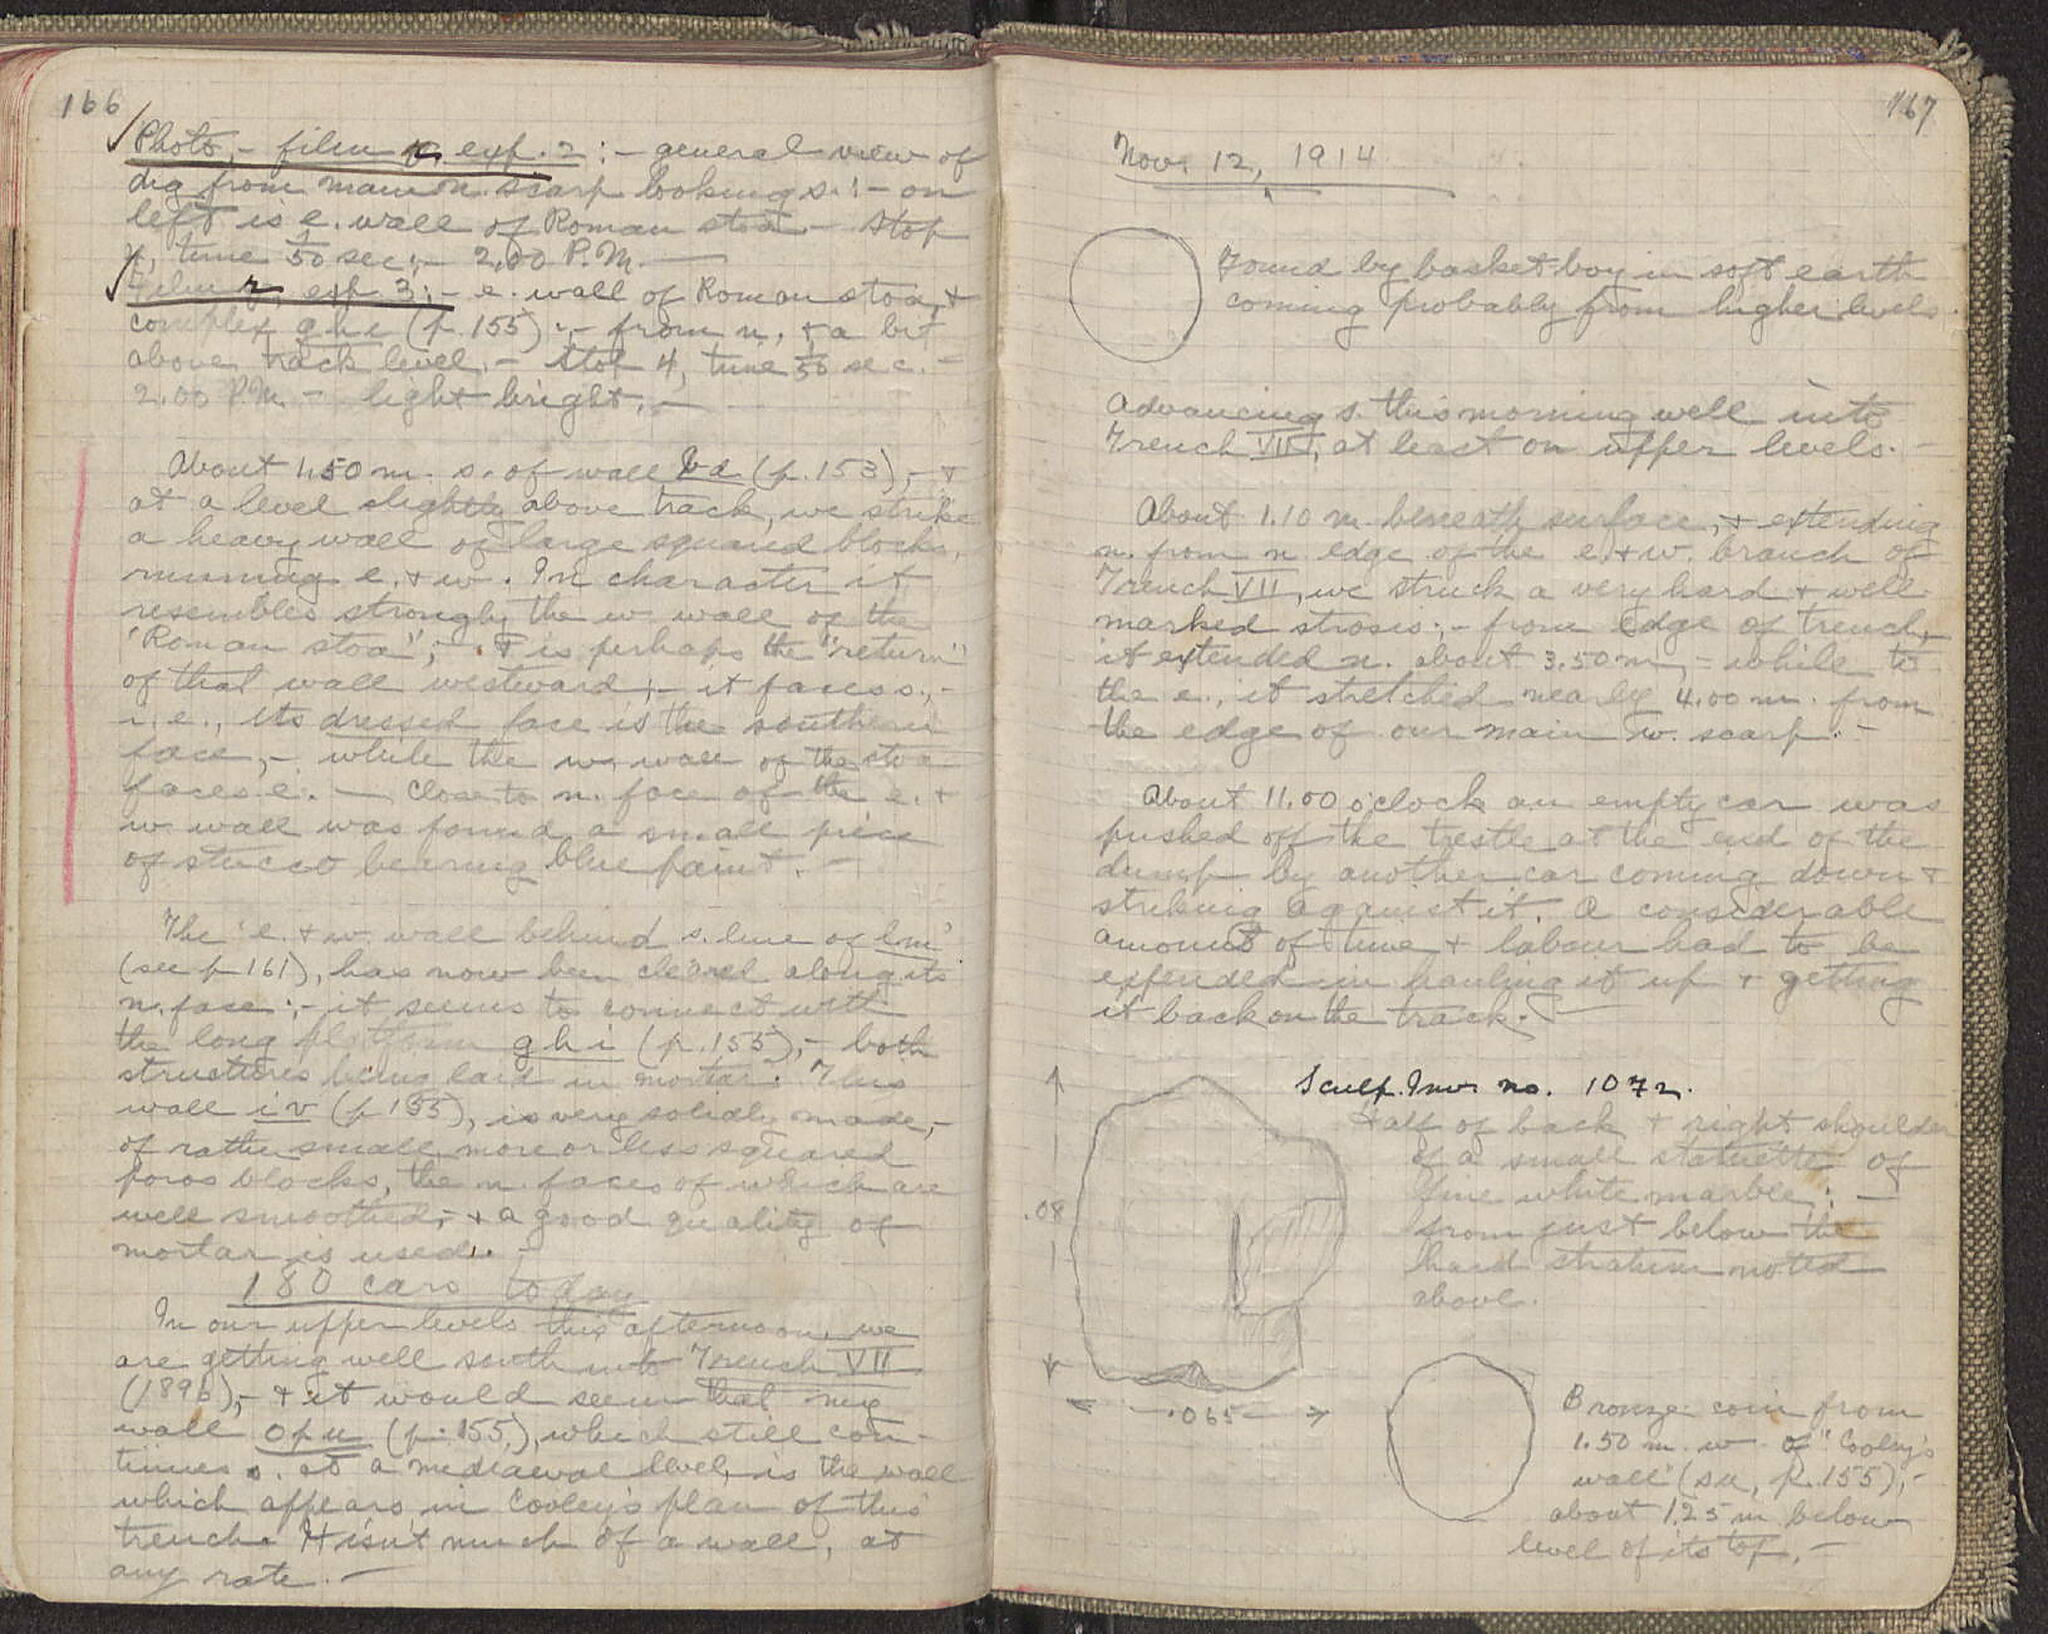 166
Photo, - film exp. 2 : - general view of
dig from main n. scarp looking s. : - on
left is e. wall of Roman stoa - stop
4, time 1/50 sec; - 2.00 P.M. -
Film exp. 3 : - e. wall of Roman stoa, +
complex ghi (p. 155) : - from n. + a bit
above track level. - Stop 4, time 1/50 sec. -
2.00 P.M. - light bright. -
About 1.50 m. s. of wall (p. 153), - +
at a level slightly above track, we strike
a heavy wall of large squared blocks,
running e. + w. In character it
resembles strongly the w. wall of the
"Roman stoa", - + is perhaps the "return"
of that wall westward; - it faces s., -
i. e., its dressed face is the southern
face, - while the w. wall of the stoa
faces e. - Close to n. face of the e. +
w. wall was found a small piece
of stucco bearing blue paint. -
The "e. + w. wall behind s. line of lm"
(see p 161), has now been cleared along its
n. face : - it seems to connect with
the long platform ghi (p. 155), - both
structures being laid in mortar. This
wall iv (p 155), is very solidly made, -
of rather small more or less squared
poros blocks, the n. faces of which are
well smoothed, - + a good quality of
mortar is used. -
180 cars today
In our upper levels this afternoon, we
are getting well south into Trench VII
(1896), - + it would seem that my
wall opu (p. 155), which still con-
tinues s. at a mediaeval level, is the wall
which appears in Cooley's plan of this
trench. It isn't much of a wall, at
any rate. -
167
Nov. 12, 1914
Found by basket boy in soft earth
coming probably from higher levels.
Advancing s. this morning well into
Trench VII, at least on upper levels. -
About 1.10 m. beneath surface, + extending
n. from n edge of the e. + w. branch of
Trench VII, we struck a very hard + well
marked strosis : - from edge of trench, -
it extended n. about 3.50 m, - while to
the e., it stretched nearly 4.00 m. from
the edge of our main w. scarp. -
About 11.00 o'clock an empty car was
pushed off the trestle at the end of the
dump by another car coming down +
striking against it. A considerable
amount of time + labour had to be
expended in hauling it up + getting
it back on the track. -
Sculp. Inv. no. 1072.
Half of back + right shoulder
of a small statuette of
fine white marble : -
from just below the
hard stratum noted
above.
.08
.065
Bronze coin from
1.50 m. w. of "Cooley's
wall" (su, p. 155), -
about 1.25 m below
level of its top. -